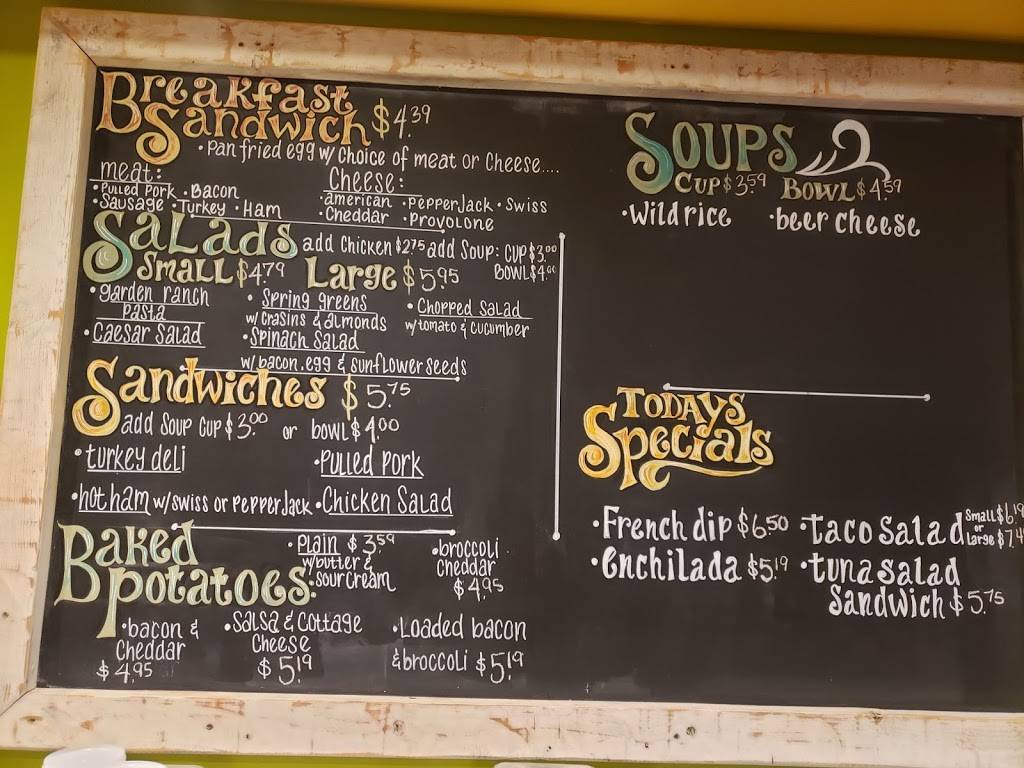 Breakfast
Sandwich $4.39
• Pan fried egg w/ choice of meat or Cheese....
meat:
• Pulled Pork • Bacon
• Sausage • Turkey • Ham
Cheese:
• american • PepperJack • Swiss
• Cheddar • Provolone
Salads add Chicken $2.75 add Soup: CUP $3.00
BOWL $4.00
Small $4.79 Large $5.95
• garden ranch
pasta
• Caesar Salad
• Spring greens
w/ crasins & almonds
• Spinach Salad
w/ bacon, egg & sunflower seeds
• Chopped Salad
w/ tomato & cucumber
Sandwiches $5.75
add Soup Cup $3.00 or bowl $4.00
• turkey deli
• Pulled Pork
• hot ham w/ swiss or Pepper Jack
• Chicken Salad
Baked
Potatoes:
• Plain $3.59
w/ butter &
sour cream
• broccoli
cheddar
$4.95
• bacon &
Cheddar
$4.95
• Salsa & Cottage
Cheese
$5.19
• Loaded bacon
& broccoli $5.19
Soups
CUP $3.59 BOWL $4.59
• Wild rice • beer cheese
Todays
Specials
• French dip $6.50
• Enchilada $5.19
• taco Salad Small $6.19
or
Large $7.4
• tuna salad
Sandwich $5.75